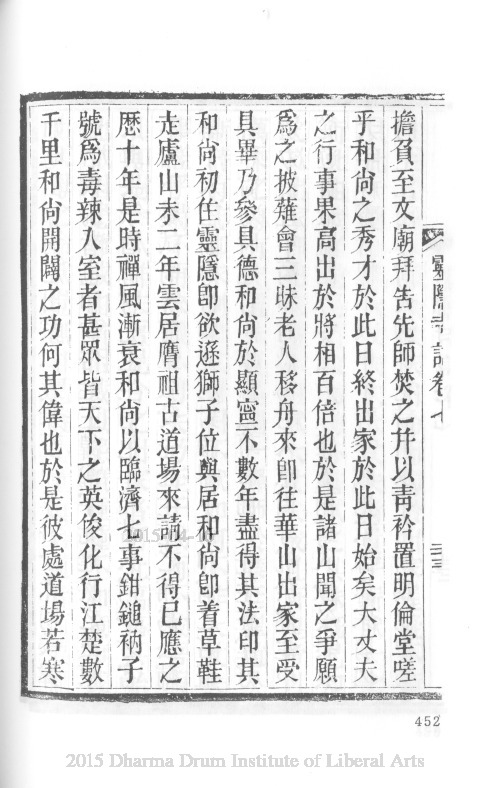 擔負至文廟拜告先師焚之幷以靑衿置明倫堂嗟
乎和尙之秀才於此日終出家於此日始矣大丈夫
之行事果高出於將相百倍也於是諸山聞之爭願
爲之披薙會三昧老人移舟來卽往華山出家至受
具畢乃參具德和尙於顯寧不數年盡得其法印其
和尙初住靈隱卽欲遜獅子位與居和尙卽着草鞋
走廬山未二年雲居膺祖古道場來請不得已應之
歷十年是時禪風漸衰和尙以臨濟七事鉗鎚衲子
號爲毒辣入室者甚眾皆天下之英俊化行江楚數
千里和尙開闢之功何其偉也於是彼處道場若寒
靈隱寺誌卷七
三三
452
2015 Dharma Drum Institute of Liberal Arts